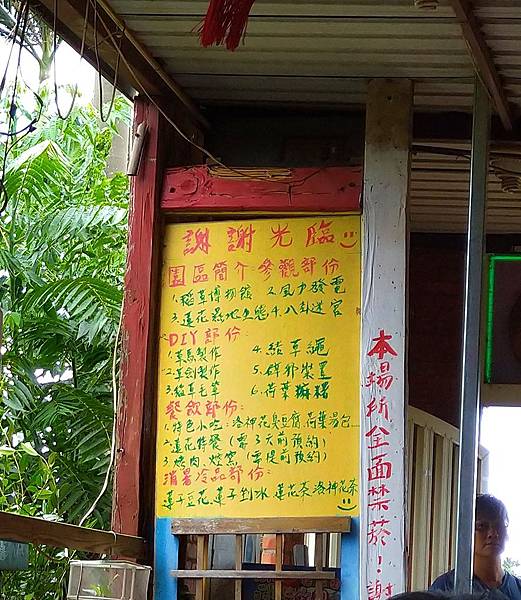 謝謝光臨
園區簡介參觀部份
1.稻草博物館 2.風力發電
3.蓮花濕地生態 4.八卦迷宮
DIY部份:
1.草馬製作 4.結草繩
2.草劍製作 5.碎神裝置
3.結草毛筆 6.荷葉麻糬
餐飲部份:
1.特色小吃:洛神花臭豆腐.荷葉湯包...
2.蓮花特餐(需3天前預約)
3.烤肉、焢窯(需提前預約)
消暑冷品部份:
蓮子豆花.蓮子剉冰.蓮花茶.洛神花茶
本場所全面禁菸!謝